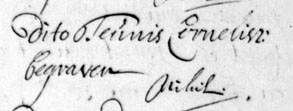 dito Teunis Cornelisz:
begraven
Nihil.